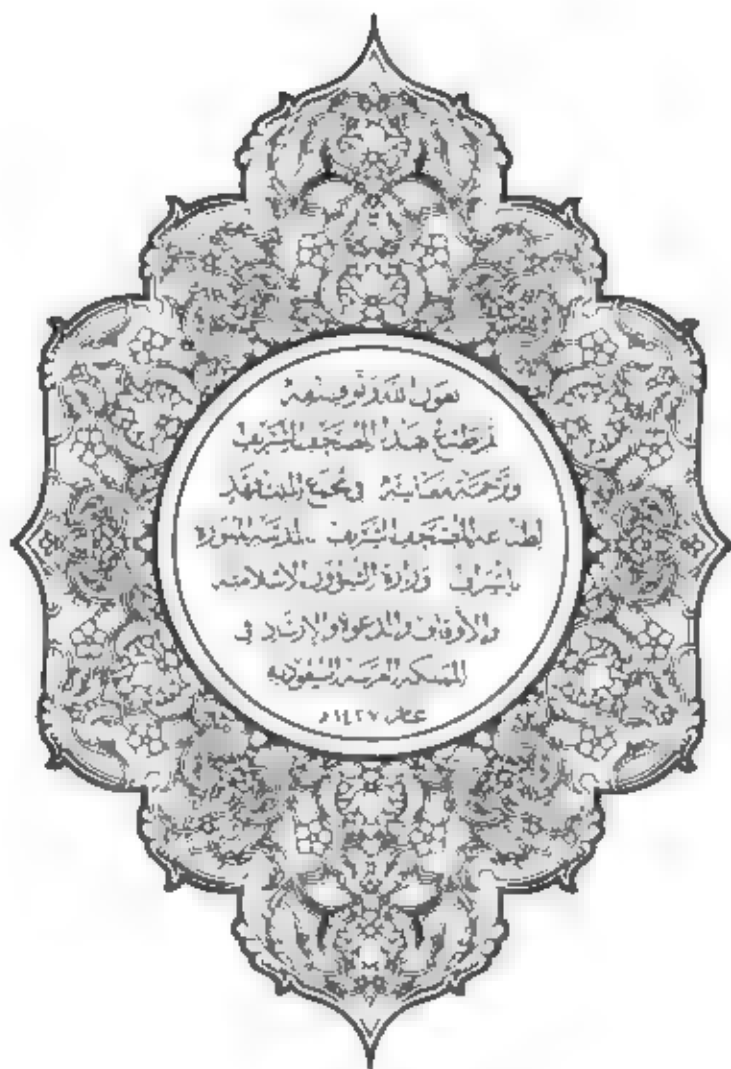 بعون الله وتوفيقه
تم طبع هذا المصحف الشريف
وترجمة معانيه في مجمع الملك فهد
لطباعة المصحف الشريف بالمدينة المنورة
بإشراف وزارة الشؤون الإسلامية
والأوقاف والدعوة والإرشاد في
المملكة العربية السعودية
عام ١٤٢٧هـ